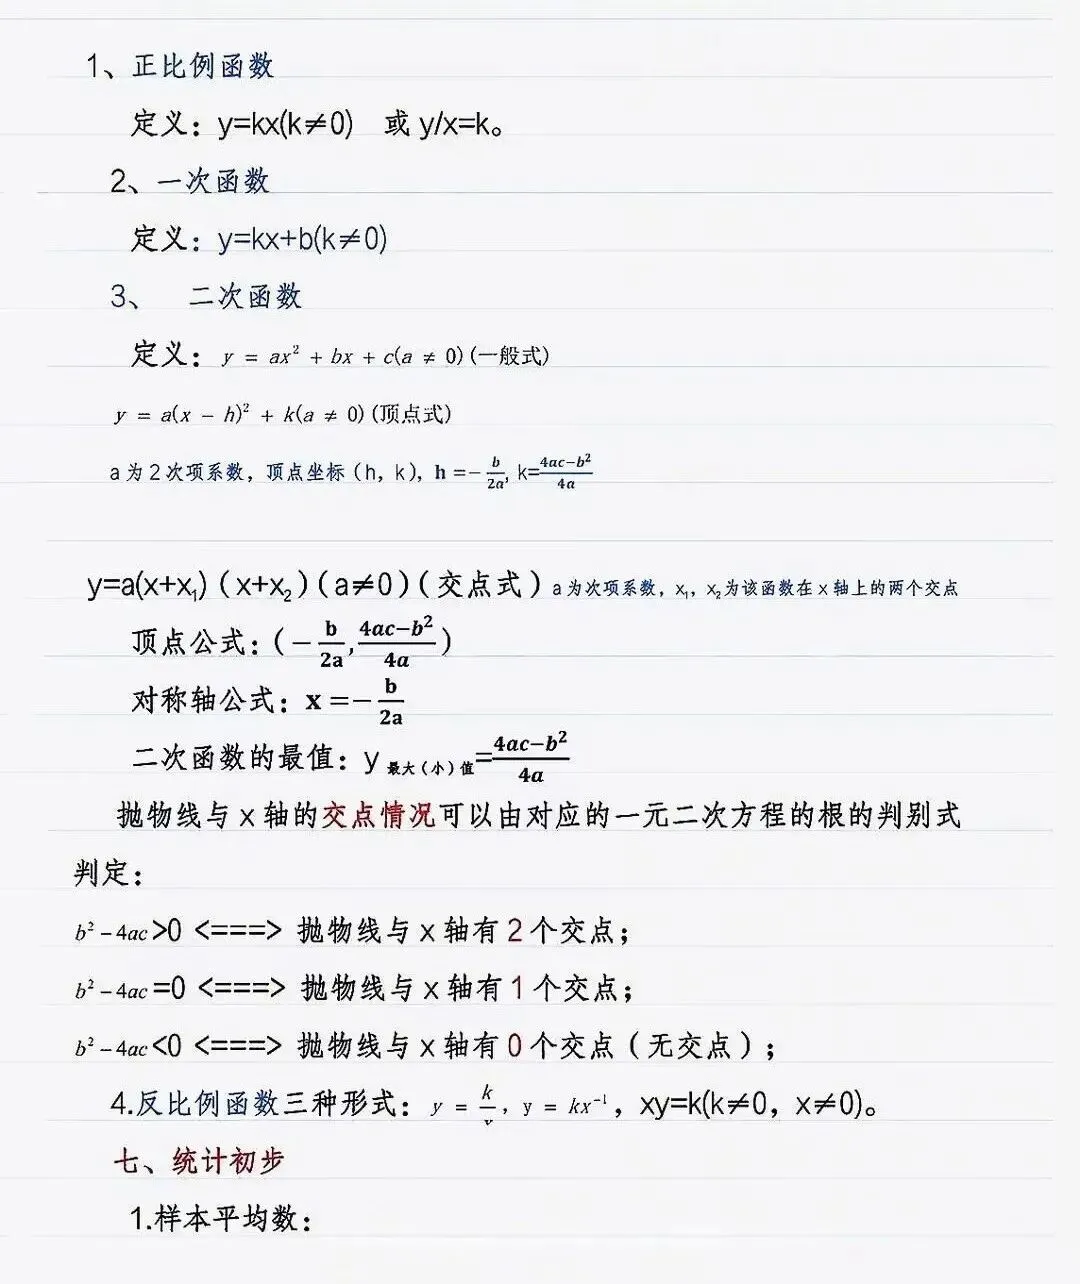 1、正比例函数
定义：y=kx(k≠0) 或 y/x=k。
2、一次函数
定义：y=kx+b(k≠0)
3、 二次函数
定义：y = ax² + bx + c(a ≠ 0)(一般式)
y = a(x − h)² + k(a ≠ 0)(顶点式)
a 为 2 次项系数，顶点坐标（h，k），h =−b/2a, k=4ac−b²/4a
y=a(x+x₁)（x+x₂）(a≠0)（交点式）a 为次项系数，x₁，x₂为该函数在 x 轴上的两个交点
顶点公式：(−b/2a,4ac−b²/4a)
对称轴公式：x =−b/2a
二次函数的最值：y 最大（小）值=4ac−b²/4a
抛物线与 x 轴的交点情况可以由对应的一元二次方程的根的判别式
判定：
b²−4ac>0 <===> 抛物线与 x 轴有 2 个交点；
b²−4ac=0 <===> 抛物线与 x 轴有 1 个交点；
b²−4ac<0 <===> 抛物线与 x 轴有 0 个交点（无交点）；
4.反比例函数三种形式：y = k/x，y = kx⁻¹，xy=k(k≠0，x≠0)。
七、统计初步
1.样本平均数：